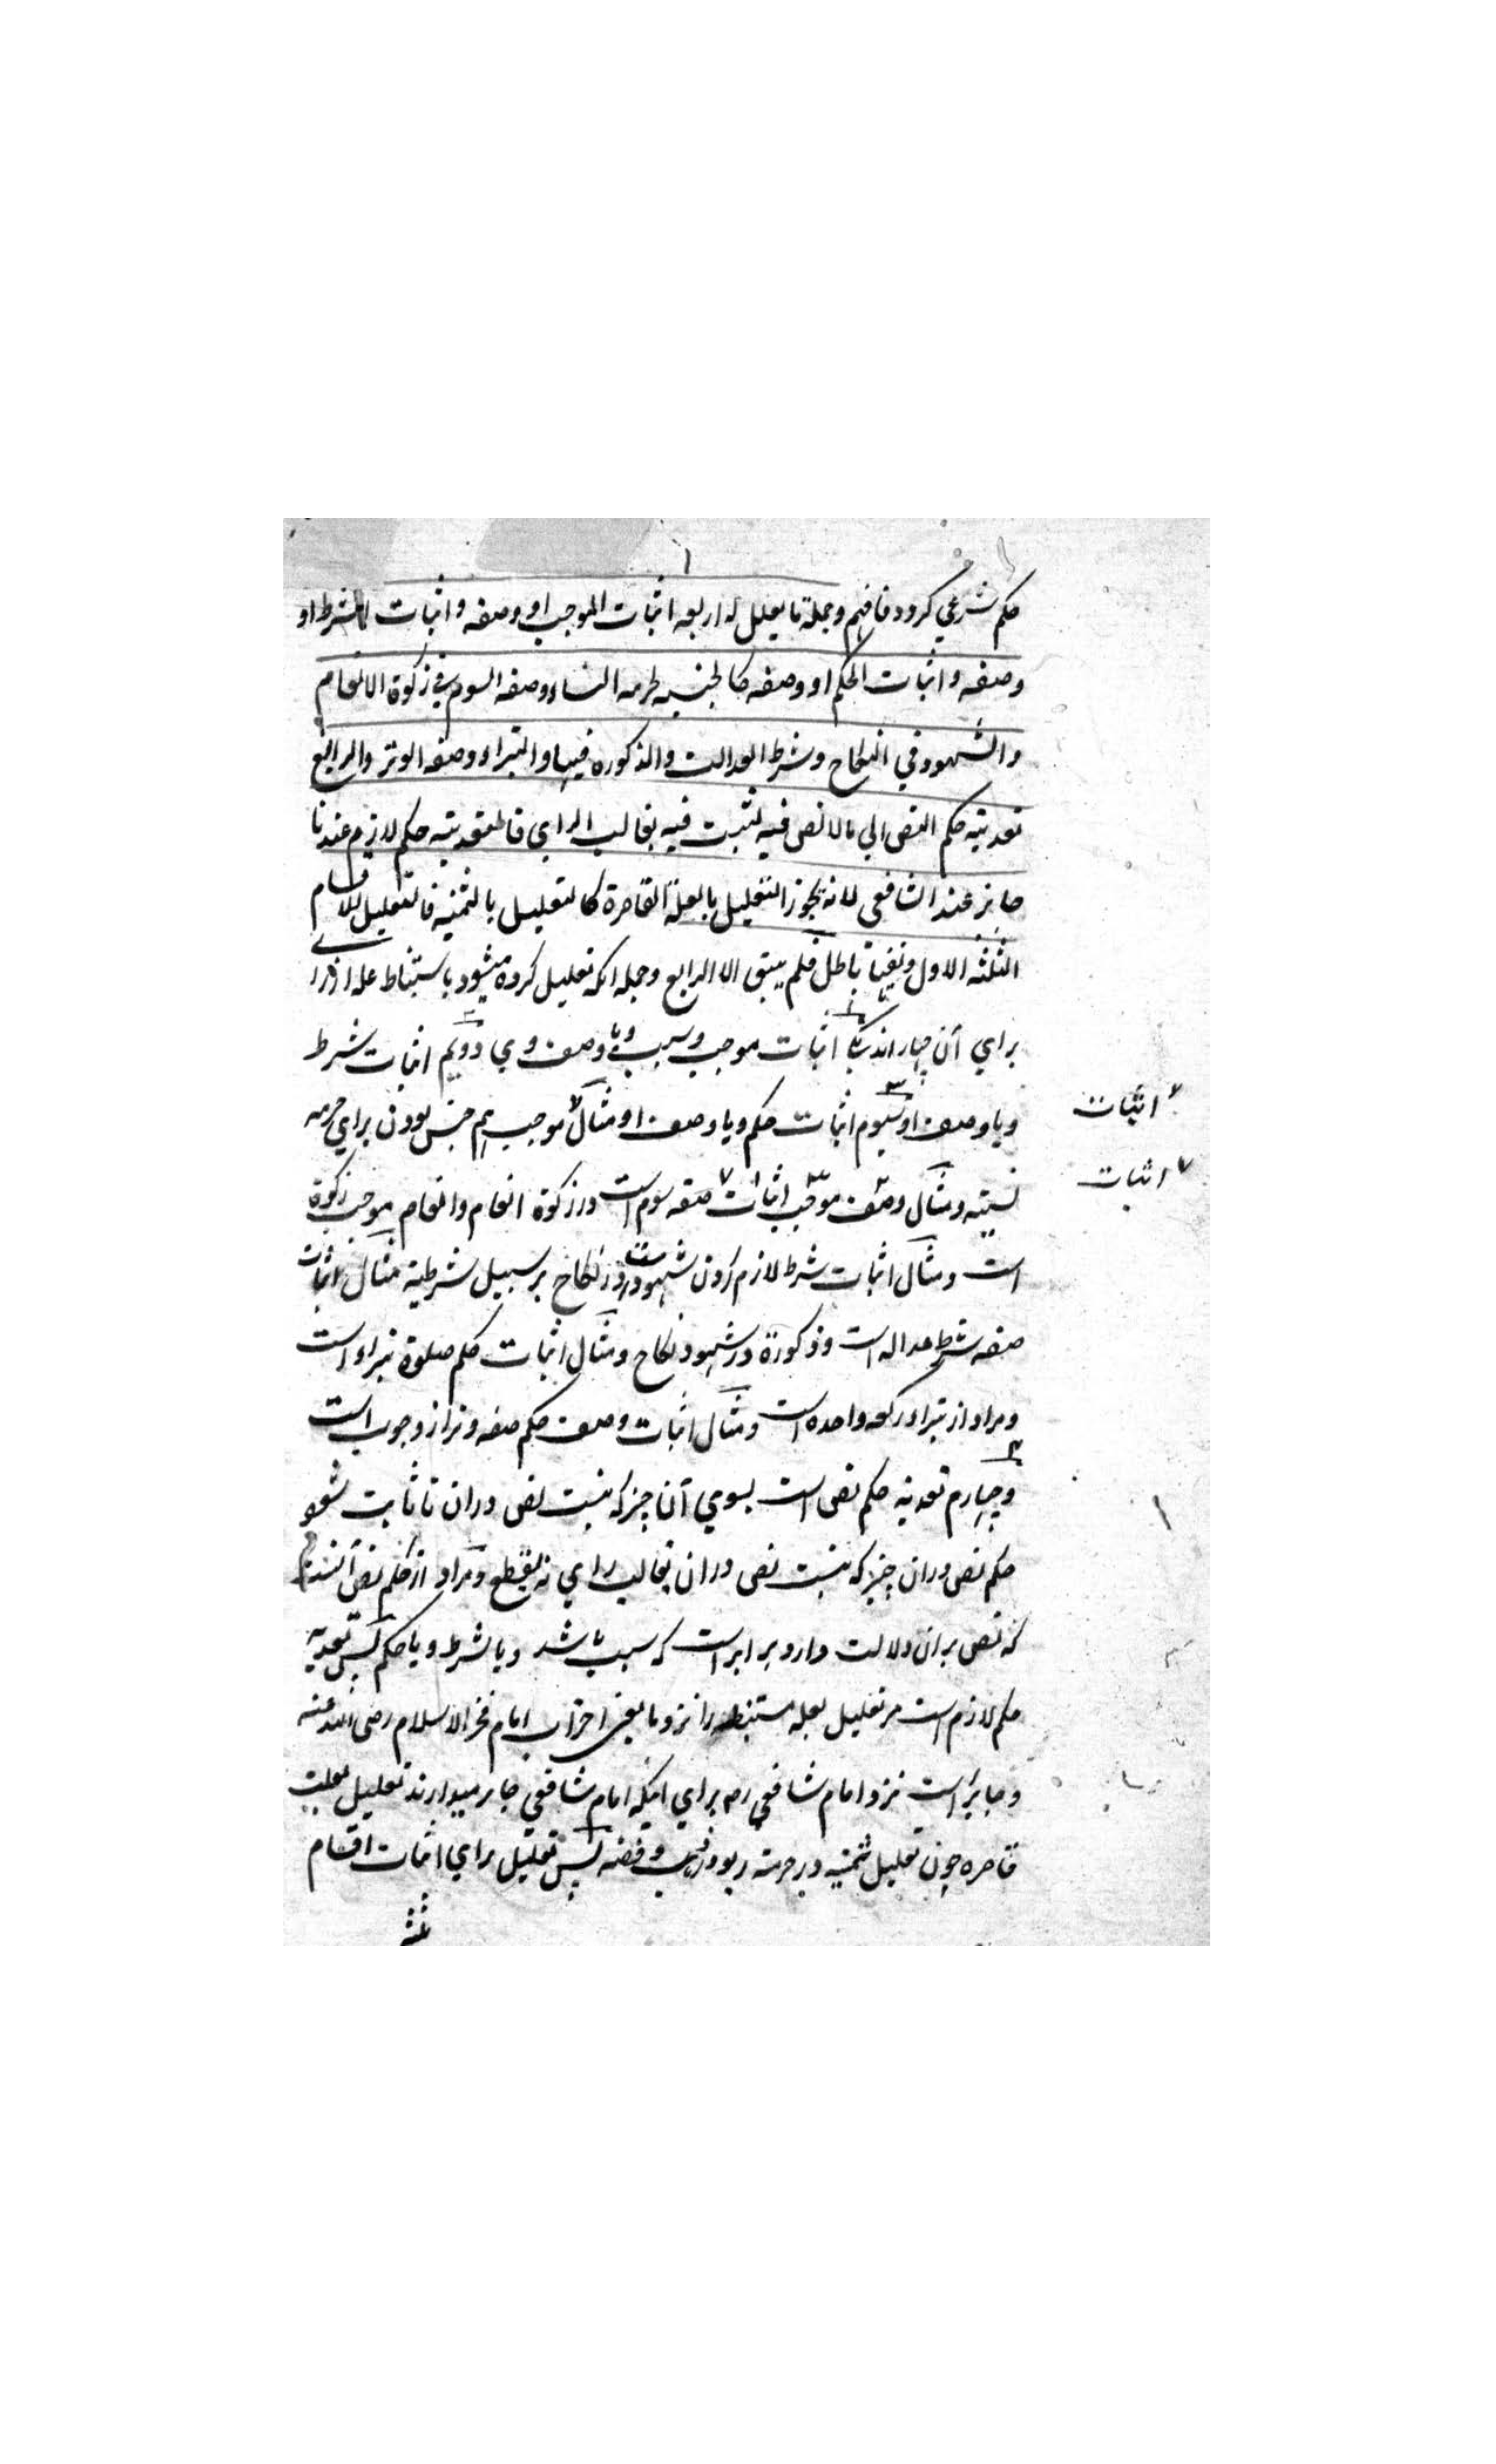 حکم شرعي کرود فافهم وجملة ما یعلل له اربعه اثبات الموجب او وصفه و اثبات الشرط او
وصفه و اثبات الحکم او وصفه کالجنسیه لحرمه النساء وصفه السوم في زکوة الانعام
والشهود في النکاح وشرط العدالت والذکوره فیها والبتراء وصفه الوتر والرابع
تعدیته حکم النص الي مالا نص فیه لتثبت فیه بغالب الراي فالتعدیته حکم لازم عندنا
جایز عند الشافعي لانه یجوز التعلیل بالعلة القاصرة کالتعلیل بالثمنیه فالتعلیل للاقسام
الثلثه الاول ونفیها باطل فلم یبق الا الرابع وجمله انکه تعلیل کروه میشود باستنباط علة از
براي آن چهار اند یکی اثبات موجب وسبب ویا وصف وي دویم اثبات شرط
ویا وصف او سیوم اثبات حکم ویا وصف او مثال موجب هم جنس بودن براي حرمه
اثبات
نسیته ومثال وصف موجب اثبات صفه سوم است درزکوة انعام وانعام موجب زکوة
اثبات
است ومثال اثبات شرط لازم کردن شهود است در نکاح بر سبیل شرطیة مثال اثبات
صفه شرط عداله است وذکورة در شهود نکاح ومثال اثبات حکم صلوة بتراء است
ومراد از بتراء رکعه واحده است ومثال اثبات وصف حکم صفه وتر از وجوب است
وچهارم تعدیه حکم نص است بسوي آنا چیز که نیست نص دران تا ثابت شود
حکم نص دران چیز که نیست نص دران بغالب راي نه بقطع ومراد از حکم نص آنست
که نص بران دلالت دارد برابر است که سبب باشد ویا شرط ویا حکم پس تعدیه
حکم لازم است مر تعلیل بعله مستنبطه را نزد ما یعنی احزاب امام فخر الاسلام رضی الله عنه
وجایز است نزد امام شافعي رح براي اینکه امام شافعي جایز میدارند تعلیل بعلت
قاصره چون تعلیل ثمنیه در حرمته ربو در ذهب وفضه پس تعلیل براي اثبات اقسام
ثلثه